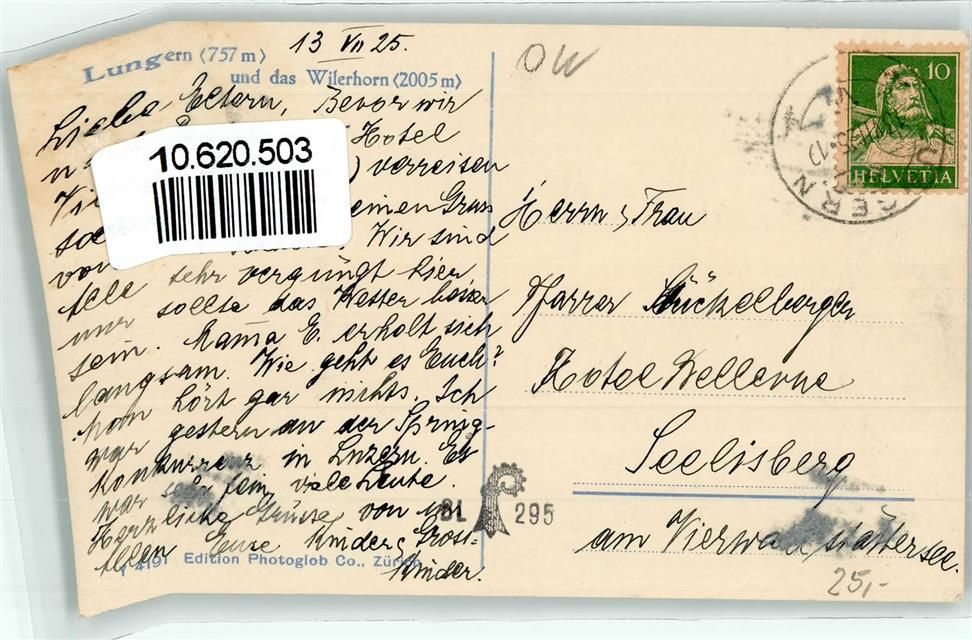 13 VII 25.
Lungern (757 m)
und das Wilerhorn (2005 m)
Liebe Eltern, Bevor wir
Hotel
) verreisen
einen Gruss
von Wir sind
Alle sehr vergnügt hier
nur sollte das Wetter besser
sein. Mama E. erholt sich
langsam. Wie geht es Euch?
Man hört gar nichts. Ich
war gestern an der Spring-
Konkurrenz in Luzern. Es
war sehr fein, viele Leute.
Herzliche Grüsse von uns
Allen Eure Kinder & Gross-
Kinder.
Y 4191 Edition Photoglob Co., Zürich
10.620.503
OW
10
HELVETIA
Herrn & Frau
Pfarrer Bückelberger
Hotel Bellevue
Seelisberg
am Vierwaldstättersee.
BL 295
25,-